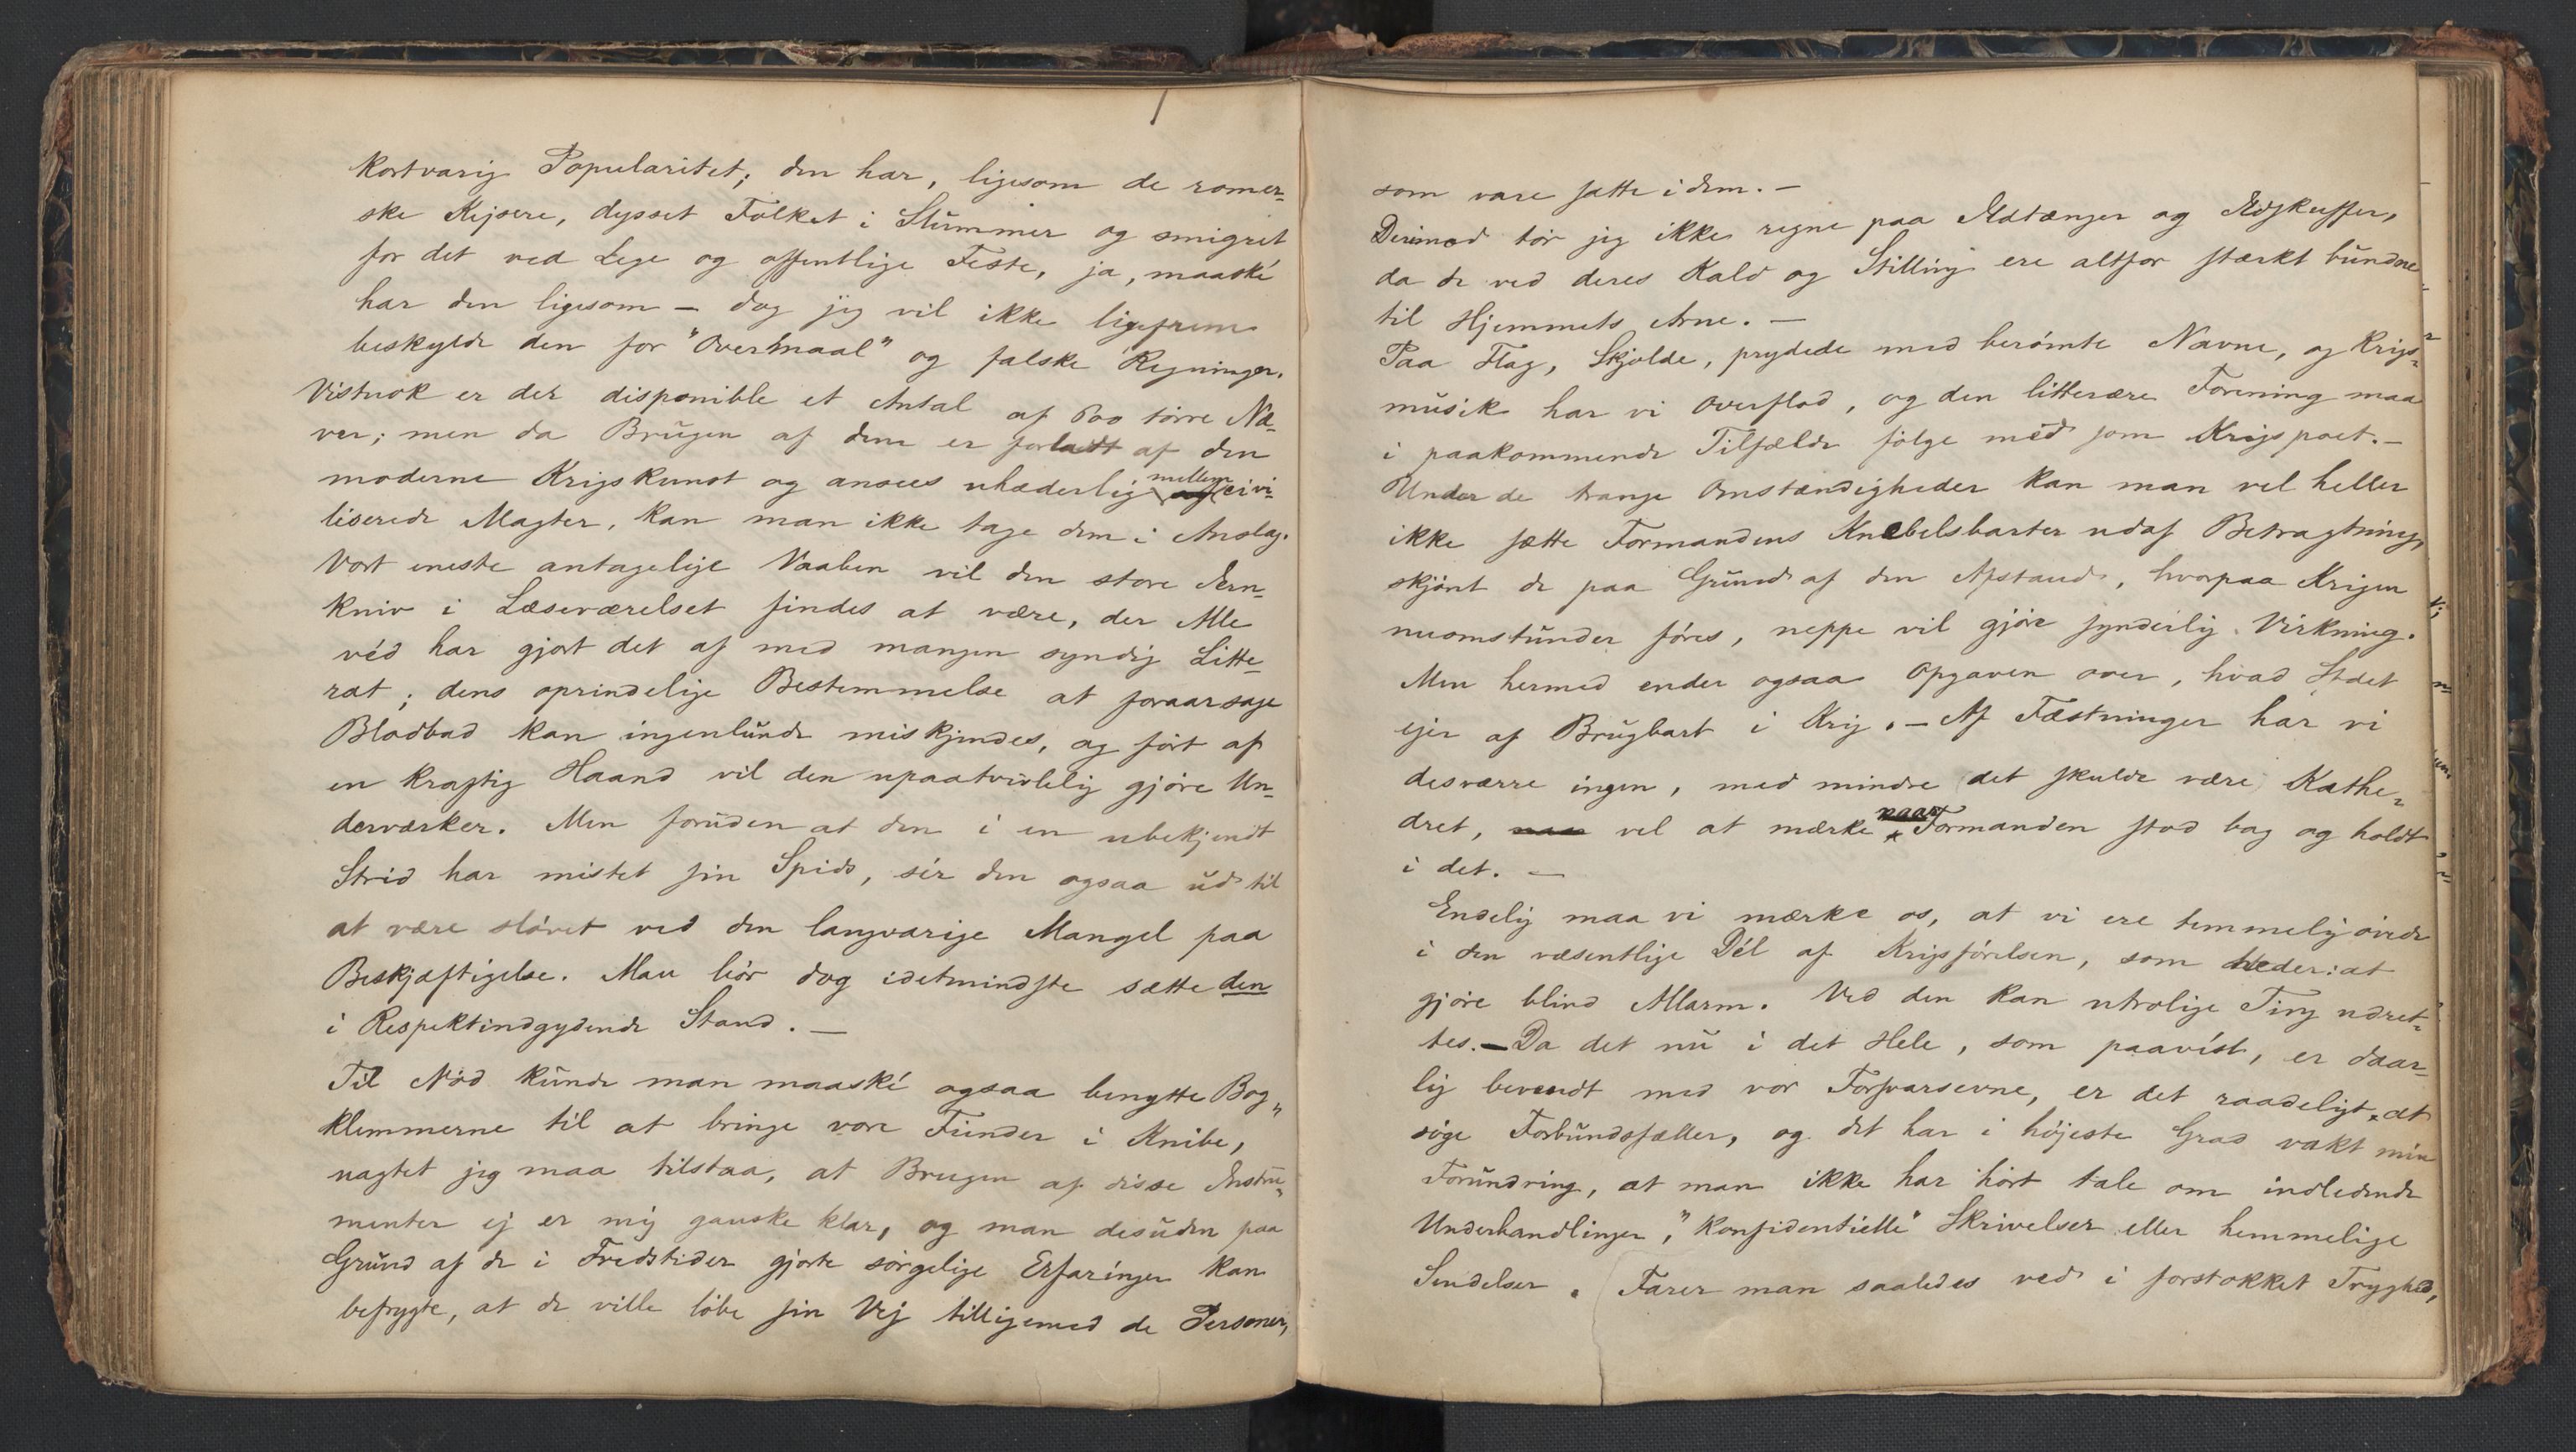 kortvarig Popularitet; den har, ligesom de romer-
ske Kejsere, dysset Folket i Slummer og smigret
for det ved Lege og offentlige Feste, ja, maaské
har den ligesom – dog jeg vil ikke ligefrem
beskylde den for "Overmaal" og falske Regninger.
Vistnok er der disponible et Antal af 800 tørre Næ-
ver; men da Brugen af dem er forladt af den
moderne Krigskunst og ansees uhæderlig mellem civi-
liserede Magter, kan man ikke tage dem i Anslag.
Vort eneste antagelige Vaaben vil den store Jern-
kniv i Læseværelset findes at være, der Alle
véd har gjort det af med mangen syndig Litte-
rat; dens oprindelige Bestemmelse at foraarsage
Blodbad kan ingenlunde miskjendes, og ført af
en kraftig Haand vil den upaatvivlelig gjøre Un-
derværker. Men foruden at den i en ubekjendt
Strid har mistet sin Spids, sér den ogsaa ud til
at være sløvet ved den langvarige Mangel paa
Beskjæftigelse. Man bør dog idetmindste sætte den
i Respektindgydende Stand. —
Til Nød kunde man maaské ogsaa benytte Bog-
klemmerne til at bringe vore Fiender i Knibe,
uagtet jeg maa tilstaa, at Brugen af disse Instru-
menter ej er mig ganske klar, og man desuden paa
Grund af de i Fredstider gjorte sørgelige Erfaringer kan
befrygte, at de ville løbe sin Vej tilligemed de Personer,
som vare satte i dem. –
Derimod tør jeg ikke regne paa Ildtænger og Ildskuffer,
da de ved deres Kald og Stilling ere altfor stærkt bundne
til Hjemmets Arne. —
Paa Flag, Skjolde, prydede med berømte Navne, og Krigs-
musik har vi Overflod, og den litterære Forening maa
i paakommende Tilfælde følge méd som Krigspoet. –
Under de trange Omstændigheder kan man vel heller
ikke sætte Formandens Knebelsbarter udaf Betragtning,
skjønt de paa Grund af den Afstand, hvorpaa Krigen
nuomstunder føres, neppe vil gjøre synderlig Virkning.
Men hermed ender ogsaa Opgaven over, hvad Stdet
ejer af Brugbart i Krig. – Af Fæstninger har vi
desværre ingen, med mindre det skulde være Kathe-
dret, vel at mærke naar Formanden stod bag og holdt
i det. —
Endelig maa vi mærke os, at vi ere temmelig øvede
i den væsentlige Dél af Krigsførelsen, som heder: at
gjøre blind Allarm. Ved den kan utrolige Ting udret-
tes. – Da det nu i det Hele, som paavist, er daar-
lig bevendt med vor Forsvarsevne, er det raadeligt, at
søge Forbundsfæller, og det har i højeste Grad vakt min
Forundring, at man ikke har hørt tale om indledende
Underhandlinger, "Konfidentielle" Skrivelser eller hemmelige
Sendelser. Farer man saaledes ved i forstokket Tryghed,